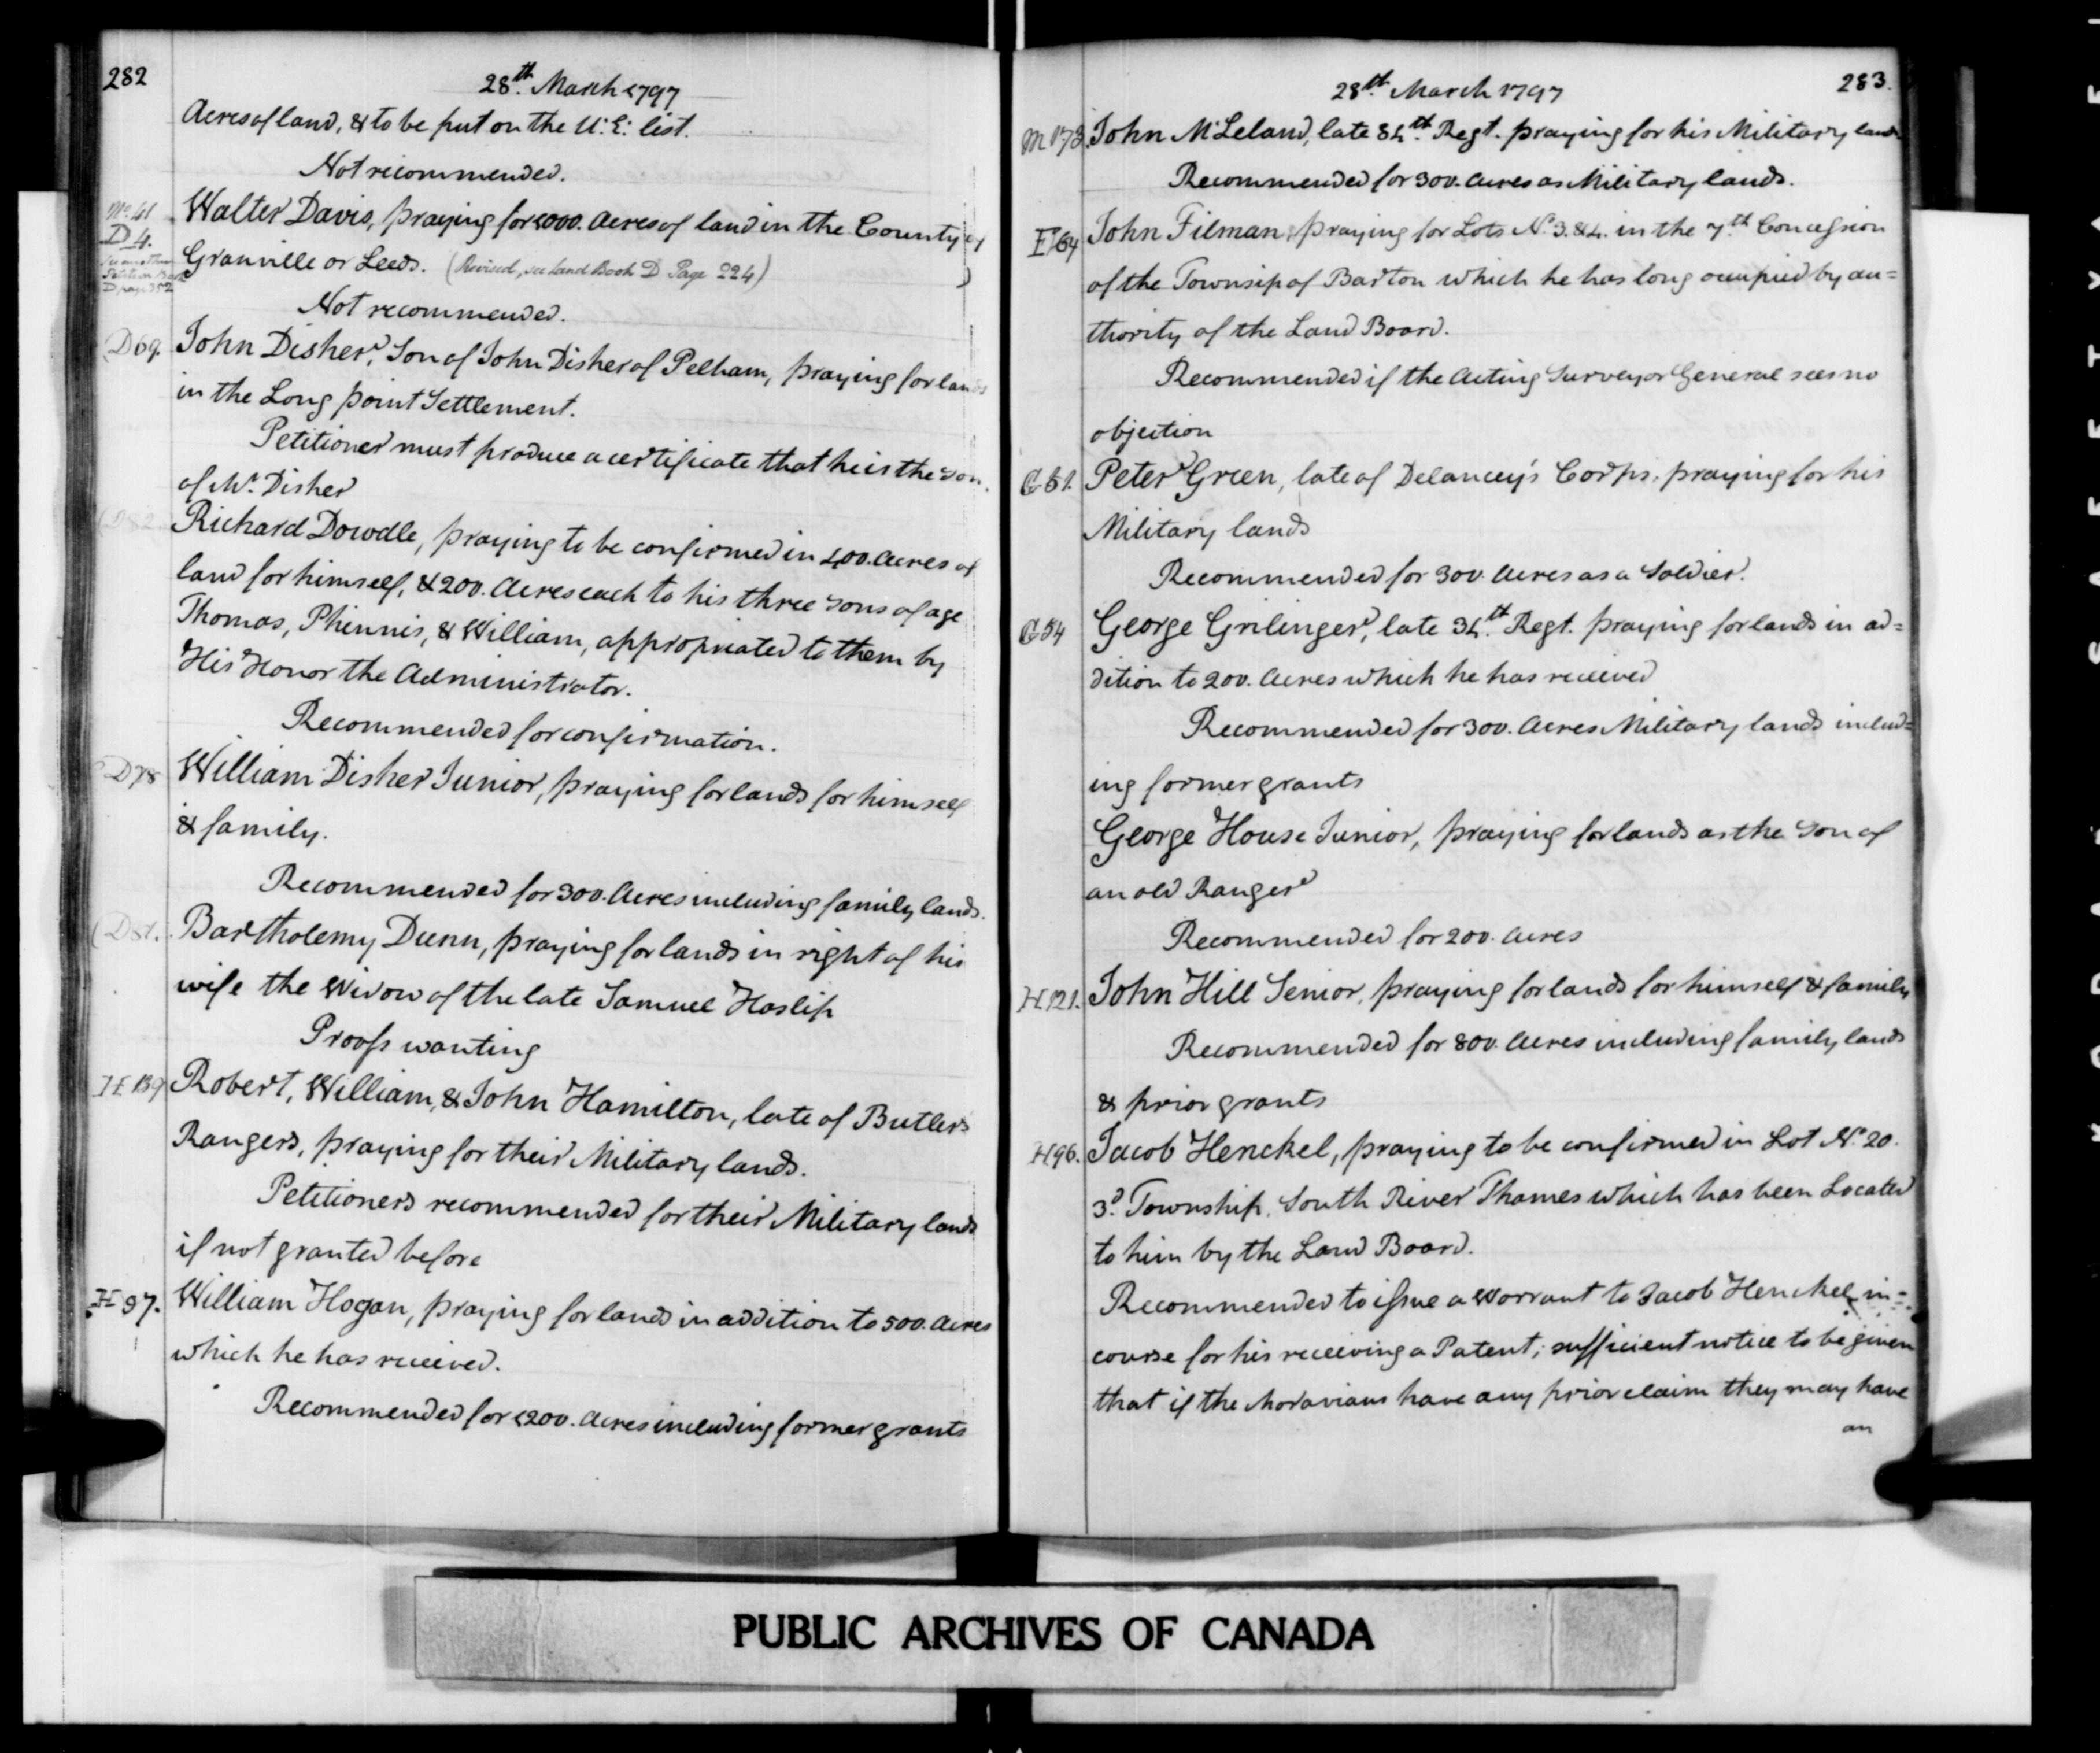 282
28th. March 1797
Acres of land, & to be put on the U: E: list.
Not recommended.
No. 41
D 4.
See another
Petition Book
D page 352
Walter Davis, praying for 1000. Acres of land in the County of
Granville or Leeds. (Revised, see Land Book D Page 224)
Not recommended.
D 69. John Disher, Son of John Disher of Pelham, praying for lands
in the Long point Settlement.
Petitioner must produce a certificate that he is the son
of Mr. Disher
Richard Dowdle, praying to be confirmed in 400. Acres of
land for himself, & 200. Acres each to his three sons of age
Thomas, Phinnis, & William, appropriated to them by
His Honor the Administrator.
Recommended for confirmation.
D 78 William Disher Junior, praying for lands for himself
& family.
Recommended for 300. Acres including family lands.
D 81. Bartholemy Dunn, praying for lands in right of his
wife the Widow of the late Samuel Haslip
Proofs wanting
H 139 Robert, William, & John Hamilton, late of Butlers
Rangers, praying for their Military lands.
Petitioners recommended for their Military lands
if not granted before
H 97. William Hogan, praying for lands in addition to 500. Acres
which he has received.
Recommended for 1200. Acres including former grants
283.
28th. March 1797
M 173. John McLeland, late 84th. Regt. praying for his Military lands
Recommended for 300. Acres as Military lands.
F 64 John Filman, praying for Lots No. 3. & 4. in the 7th. Concession
of the Townsip of Barton which he has long occupied by au=
thority of the Land Board.
Recommended if the Acting Surveyor General sees no
objection
G 51. Peter Green, late of Delancey's Corps, praying for his
Military lands
Recommended for 300. Acres as a Soldier.
G 54 George Grilinger, late 34th. Regt. praying for lands in ad=
dition to 200. Acres which he has received
Recommended for 300. Acres Military lands includ=
ing former grants
George House Junior, praying for lands as the son of
an old Ranger
Recommended for 200. Acres
H 121. John Hill Senior, praying for lands for himself & family
Recommended for 800. Acres including family lands
& prior grants
H 96. Jacob Henckel, praying to be confirmed in Lot No. 20.
3d. Township, South River Thames which has been Located
to him by the Land Board.
Recommended to issue a Warrant to Jacob Henckel, in=
course for his receiving a Patent; sufficient notice to be given
that if the Moravians have any prior claim they may have
an
PUBLIC ARCHIVES OF CANADA